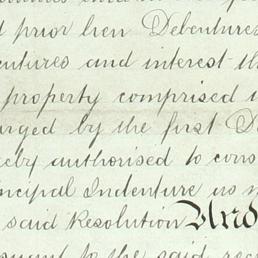 prior lien Debentures
entures and interest th
property comprised
arged by the first D
eby authorised to cons
incipal Indenture as m
said Resolution And
suant to the said